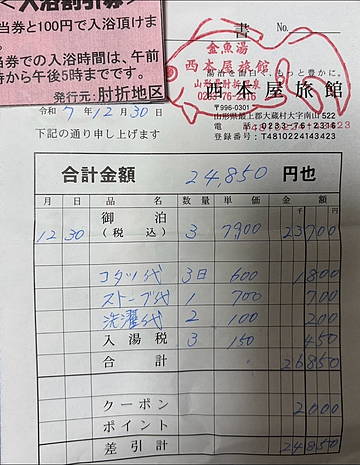 入浴割引券
当券と100円で入浴頂けま
当券での入浴時間は、午前
時から午後5時までです。
発行元:肘折地区
書 No.
金魚湯
西本屋旅館
山形県肘折温泉
0233-76-2316
湯治を面白く、もっと豊かに。
西本屋旅館
〒996-0301
山形県最上郡大蔵村大字南山522
電話 0233-76-2316
登録番号:T4810224143423
令和 7年 12月 30日
下記の通り申し上げます
合計金額 24,850 円也
月 日 品名 数量 単価 金額
12 30 御泊(税込) 3 7900 23700
コタツ代 3日 600 1800
ストーブ代 1 700 700
洗濯代 2 100 200
入湯税 3 150 450
合計 26850
クーポン 2000
ポイント
差引計 24850